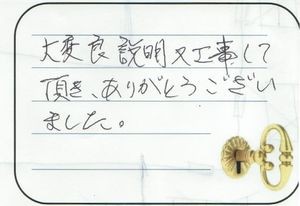 大変良説明又工事して
頂き、ありがとうござい
ました。